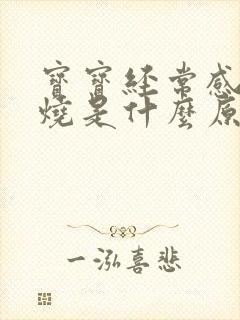 寶寶經常感
燒是什麼原
一泓喜悲